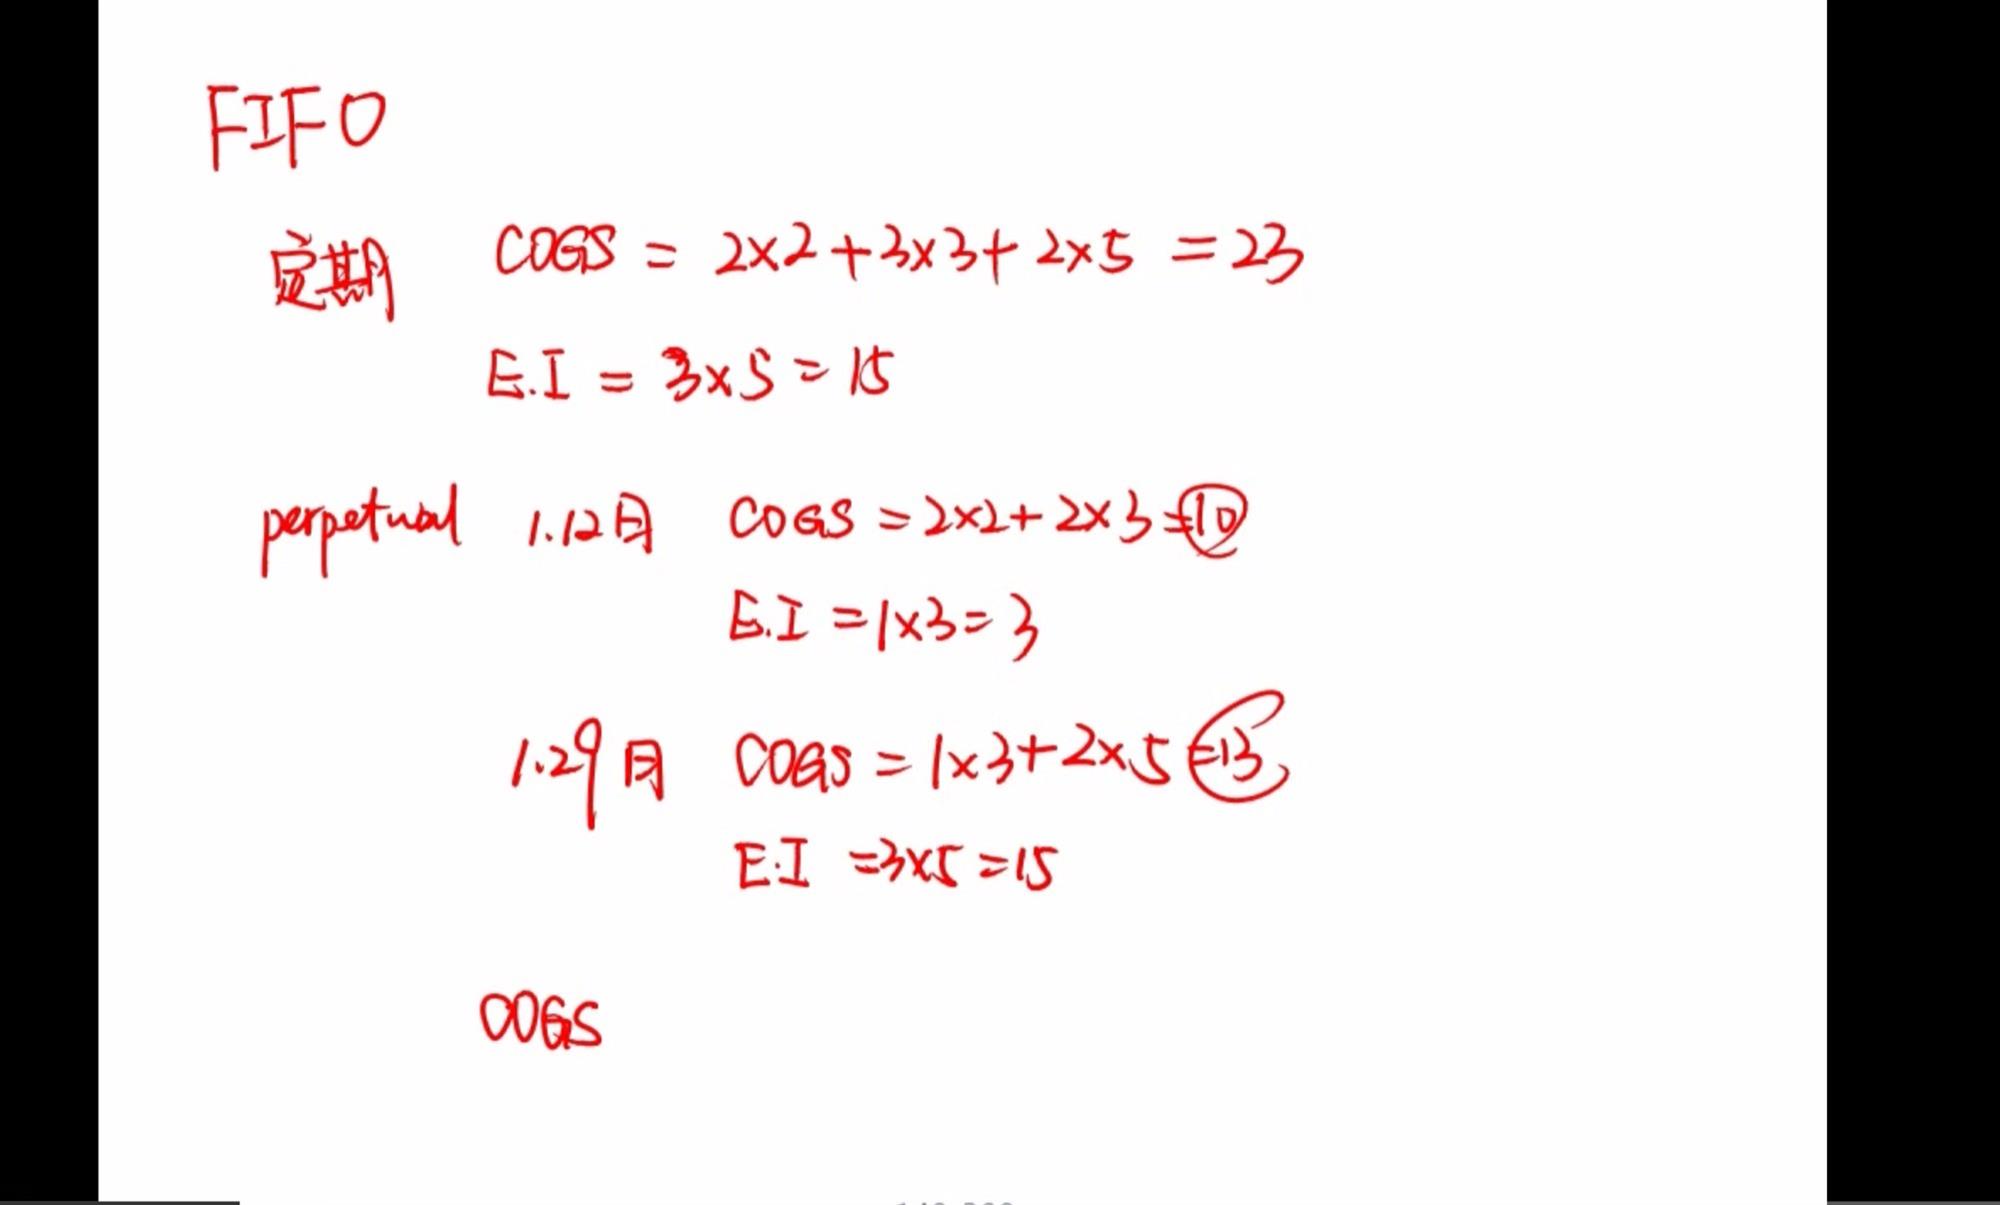 FIFO
定期 COGS = 2×2+3×3+2×5 =23
E.I = 3×5=15
perpetual 1.12日 COGS =2×2+2×3=10
E.I =1×3=3
1.29日 COGS =1×3+2×5=13
E.I =3×5=15
COGS